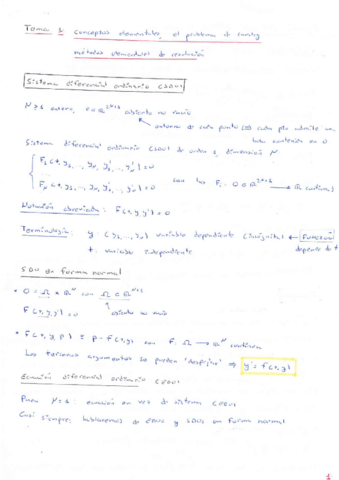 Tema 1: conceptos elementales, el problema de Cauchy
métodos elementales de resolución
Sistema diferencial ordinario (SDO)
N ≥ 1 entero, O ⊂ ℝ^{2N+1} abierto no vacío
entorno de cada punto cada pto admite una
bola contenida en O
Sistema diferencial ordinario (SDO) de orden 1, dimensión N
F₁(t, y₁, ..., y_N, y₁', ..., y_N') = 0
F_N(t, y₁, ..., y_N, y₁', ..., y_N') = 0
con las F_i: O ⊂ ℝ^{2N+1} → ℝ continuas
Notación abreviada: F(t, y, y') = 0
Terminología: y = (y₁, ..., y_N) variable dependiente (incógnita) ← Función
depende de t
t: variable independiente
SDO de forma normal
• O = Ω × ℝ^N con Ω ⊂ ℝ^{N+1}
F(t, y, y') = 0 abierto no vacío
• F(t, y, p) ≡ p - f(t, y) con f: Ω → ℝ^N continua
Los terceros argumentos se pueden "despejar" ⇒ y' = f(t, y)
Ecuación diferencial ordinaria (EDO)
Para N = 1: ecuación en vez de sistema (EDO)
Casi siempre, hablaremos de EDOs y SDOs en forma normal
1